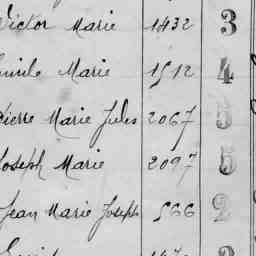 Victor Marie 1432 3
Emile Marie 1512 4
Pierre Marie Jules 2067 5
Joseph Marie 2097 5
Jean Marie Joseph 566 2